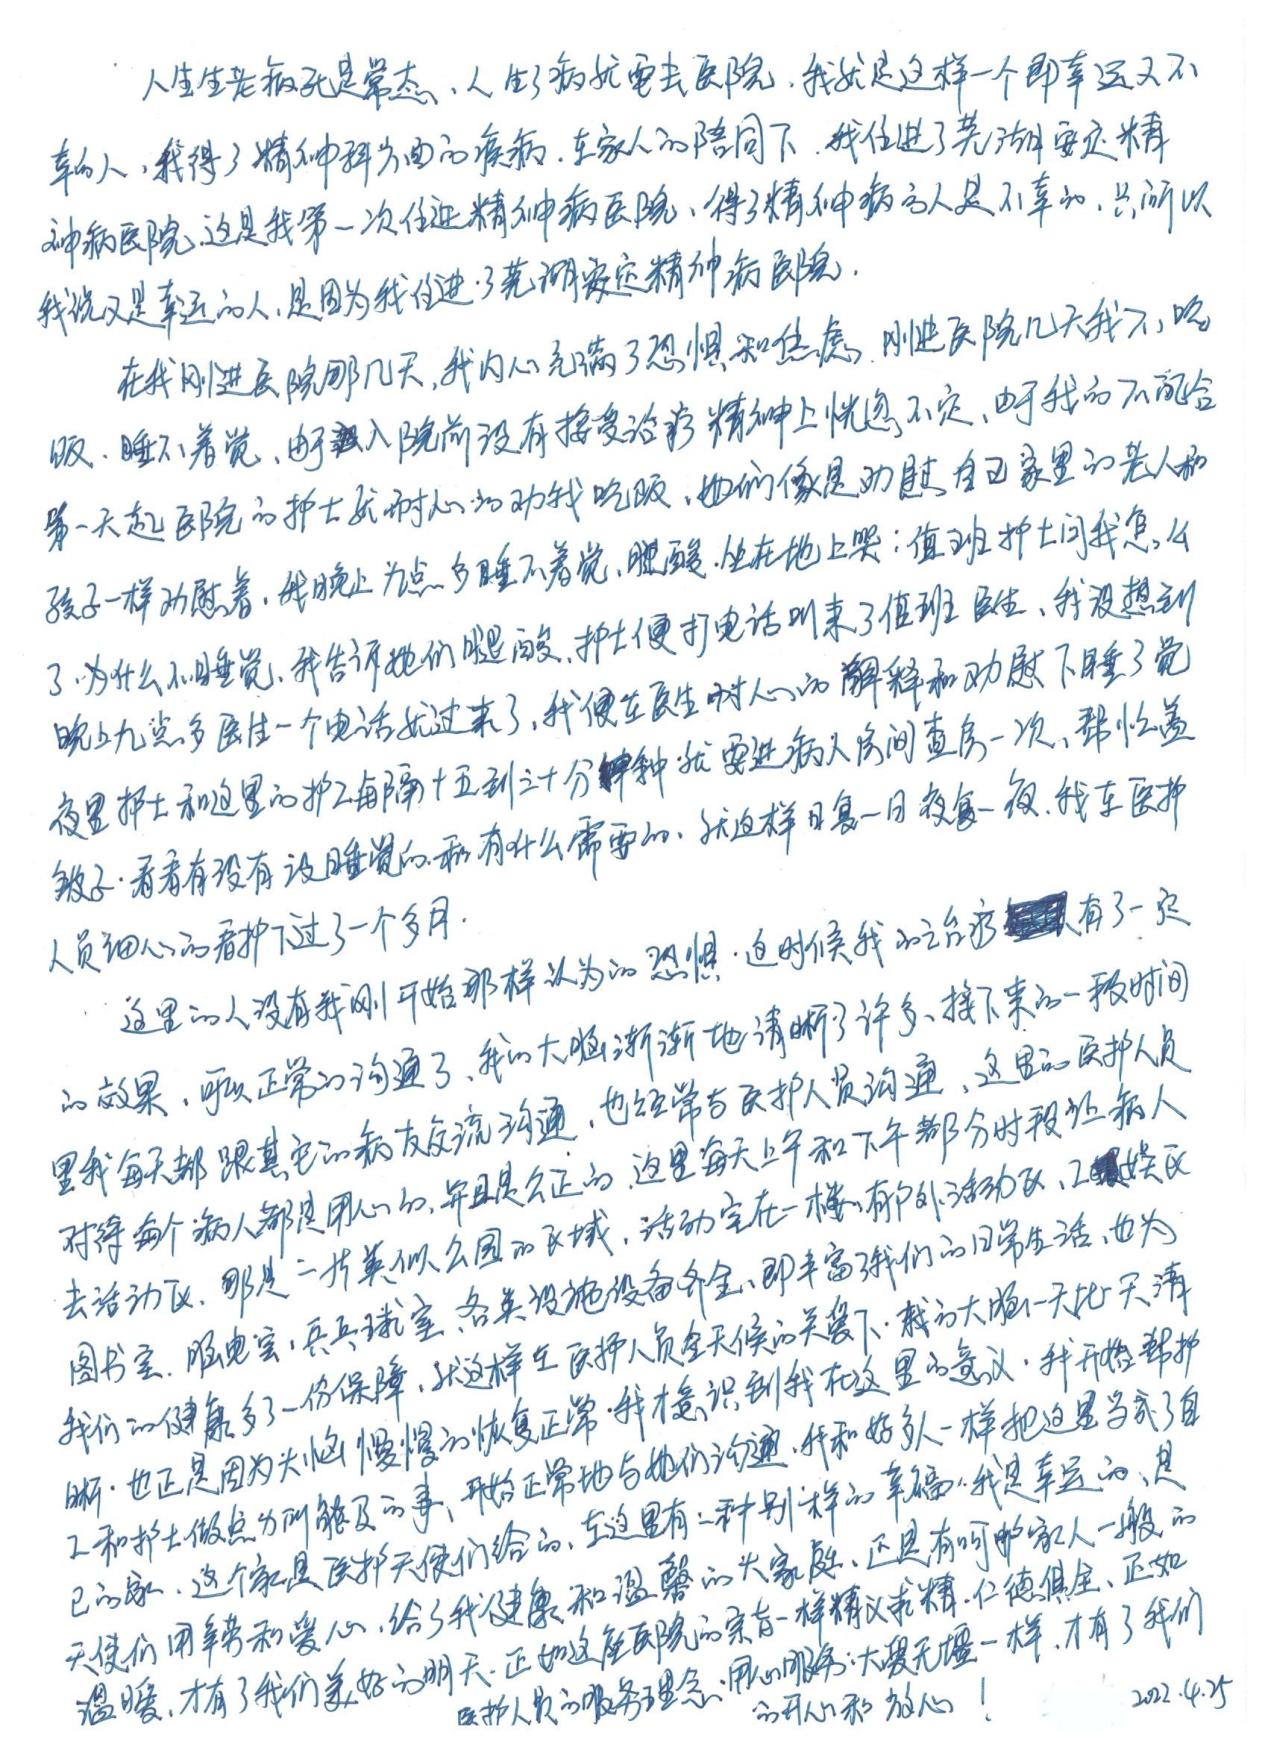 人生生老病死是常态、人生了病就要去医院、我就是这样一个即幸运又不
幸的人，我得了精神科方面的疾病.在家人的陪同下.我住进了芜湖安定精
神病医院.这是我第一次住进精神病医院、得了精神病的人是不幸的.只所以
我说又是幸运的人、是因为我住进了芜湖安定精神病医院.
在我刚进医院那几天,我内心充满了恐惧和焦虑.刚进医院几天我不吃
饭.睡不着觉、由于入院前没有接受治疗精神上恍忽不定、由于我的不配合
第一天起医院的护士就耐心的劝我吃饭、她们像是劝慰自己家里的老人和
孩子一样劝慰着.我晚上九点多睡不着觉、腿酸.坐在地上哭:值班护士问我怎么
了.为什么不睡觉、我告诉她们腿酸、护士便打电话叫来了值班医生、我没想到
晚上九点多医生一个电话就过来了,我便在医生耐心的解释和劝慰下睡了觉
夜里护士和这里的护工每隔十五到三十分钟种就要进病人房间查房一次、帮忙盖
被子.看看有没有没睡觉的.和有什么需要的.就这样日复一日夜复一夜.我在医护
人员细心的看护下过了一个多月.
这里的人没有我刚开始那样认为的恐惧.这时候我的治疗有了一定
的效果、可以正常的沟通了、我的大脑渐渐地清晰了许多、接下来的一段时间
里我每天都跟其它的病友交流沟通、也经常与医护人员沟通、这里的医护人员
对待每个病人都是用心的,并且是公正的.这里每天上午和下午都分时段让病人
去活动区、那是一片类似公园的区域,活动室在一楼、有户外活动区、工娱区
图书室.脑电室,乒乓球室、各类设施设备齐全、即丰富了我们的日常生活、也为
我们的健康多了一份保障.就这样在医护人员全天候的关爱下.我的大脑一天比一天清
晰.也正是因为大脑慢慢的恢复正常.我才意识到我在这里的意义.我开始帮护
工和护士做点力所能及的事、开始正常地与她们沟通.我和好多人一样把这里当成了自
己的家.这个家是医护天使们给的、在这里有一种别样的幸福.我是幸运的、是
天使们用辛劳和爱心、给了我健康和温馨的大家庭、还是有呵护家人一般的
温暖、才有了我们美好的明天.正如这座医院的宗旨一样精义求精.仁德俱全、正如
医护人员的服务理念.用心服务:大爱无疆一样.才有了我们
的开心和放心!
2022.4.25